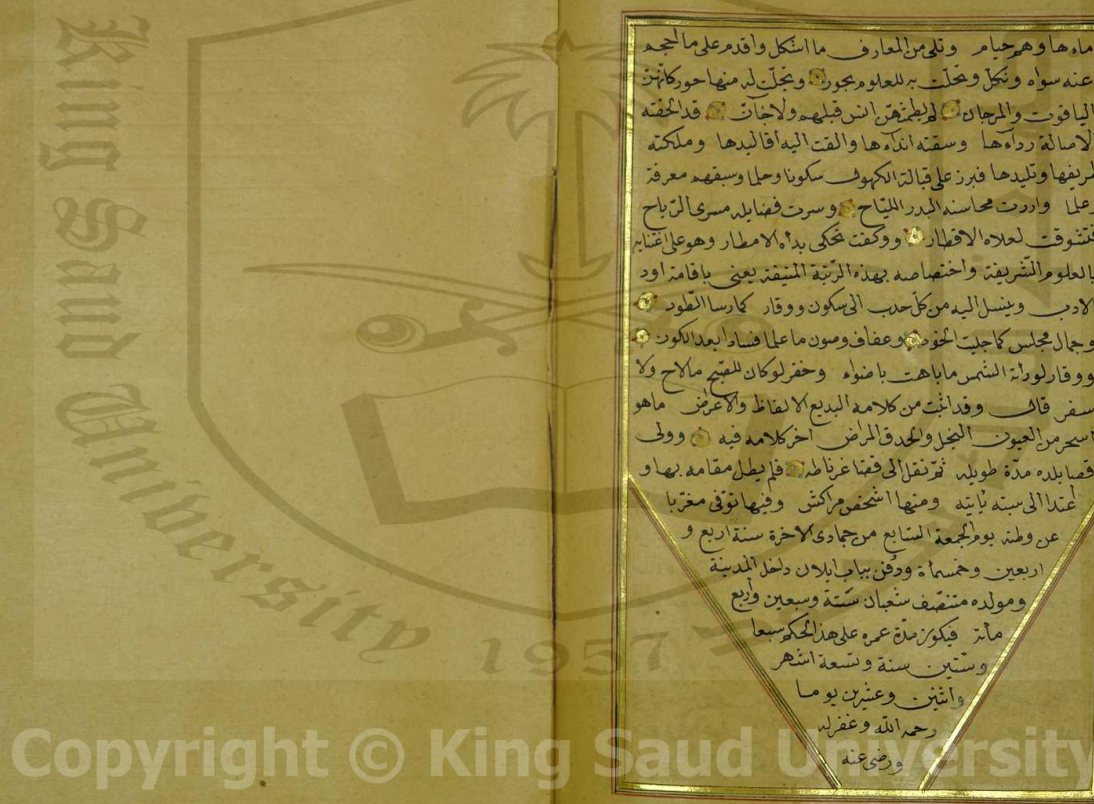 ماءها وهم حيام وتلى من المعارف ما اشكل واقدم على ما احجم
عنه سواه ونكل وتحلت به للعلوم بحور وتجلت له منها حور كانهن
الياقوت والمرجان لم يطمثهن انس قبلهم ولا جان قد الحفته
الاصالة رداءها وسقته انداءها والقت اليه أقاليدها وملكته
طريفها وتليدها فبرز على قبالة الكهول سكونا وحلما وسبقهم معرفة
وعلما وازرت محاسنه البدر اللياح وسرت فضايله مسرى الرياح
فتشوقت لعلاه الاقطار ووكفت تحكى نداه الامطار وهو على اعتنايه
بالعلوم الشريفة واختصاصه بهذه الرتبة المنيفة يعنى باقامة اود
الادب وينسل اليه من كل حدب الى سكون ووقار كما رسا الطود
وجمال مجلس كما جليت الخود وعفاف وصون ما علما فسادا بعد الكون
ووقار لو رأته الشمس ما باهت باضواء وخفر لو كان للصبح ما لاح ولا
سفر قال وقد اثبت من كلامه البديع الالفاظ والاغراض ماهو
اسحر من العيون النجل والحدق المراض اخر كلامه فيه وولى
قضا بلده مدة طويله ثم نقل الى قضا غرناطه فلم يطل مقامه بها و
أعيد الى سبته ثانية ومنها اشخص مراكش وفيها توفى مغربا
عن وطنه يوم الجمعة السابع من جمادى الاخرة سنة اربع و
اربعين وخمسمأة ودفن بباب ايلان داخل المدينة
ومولده منتصف شعبان ستة وسبعين وأربع
مأئة فيكون مدة عمره على هذا الحكم سبعا
وستين سنة وتسعة اشهر
واثنين وعشرين يوما
رحمه الله وغفر له
ورضى عنه
King Saud University
1957
Copyright © King Saud University